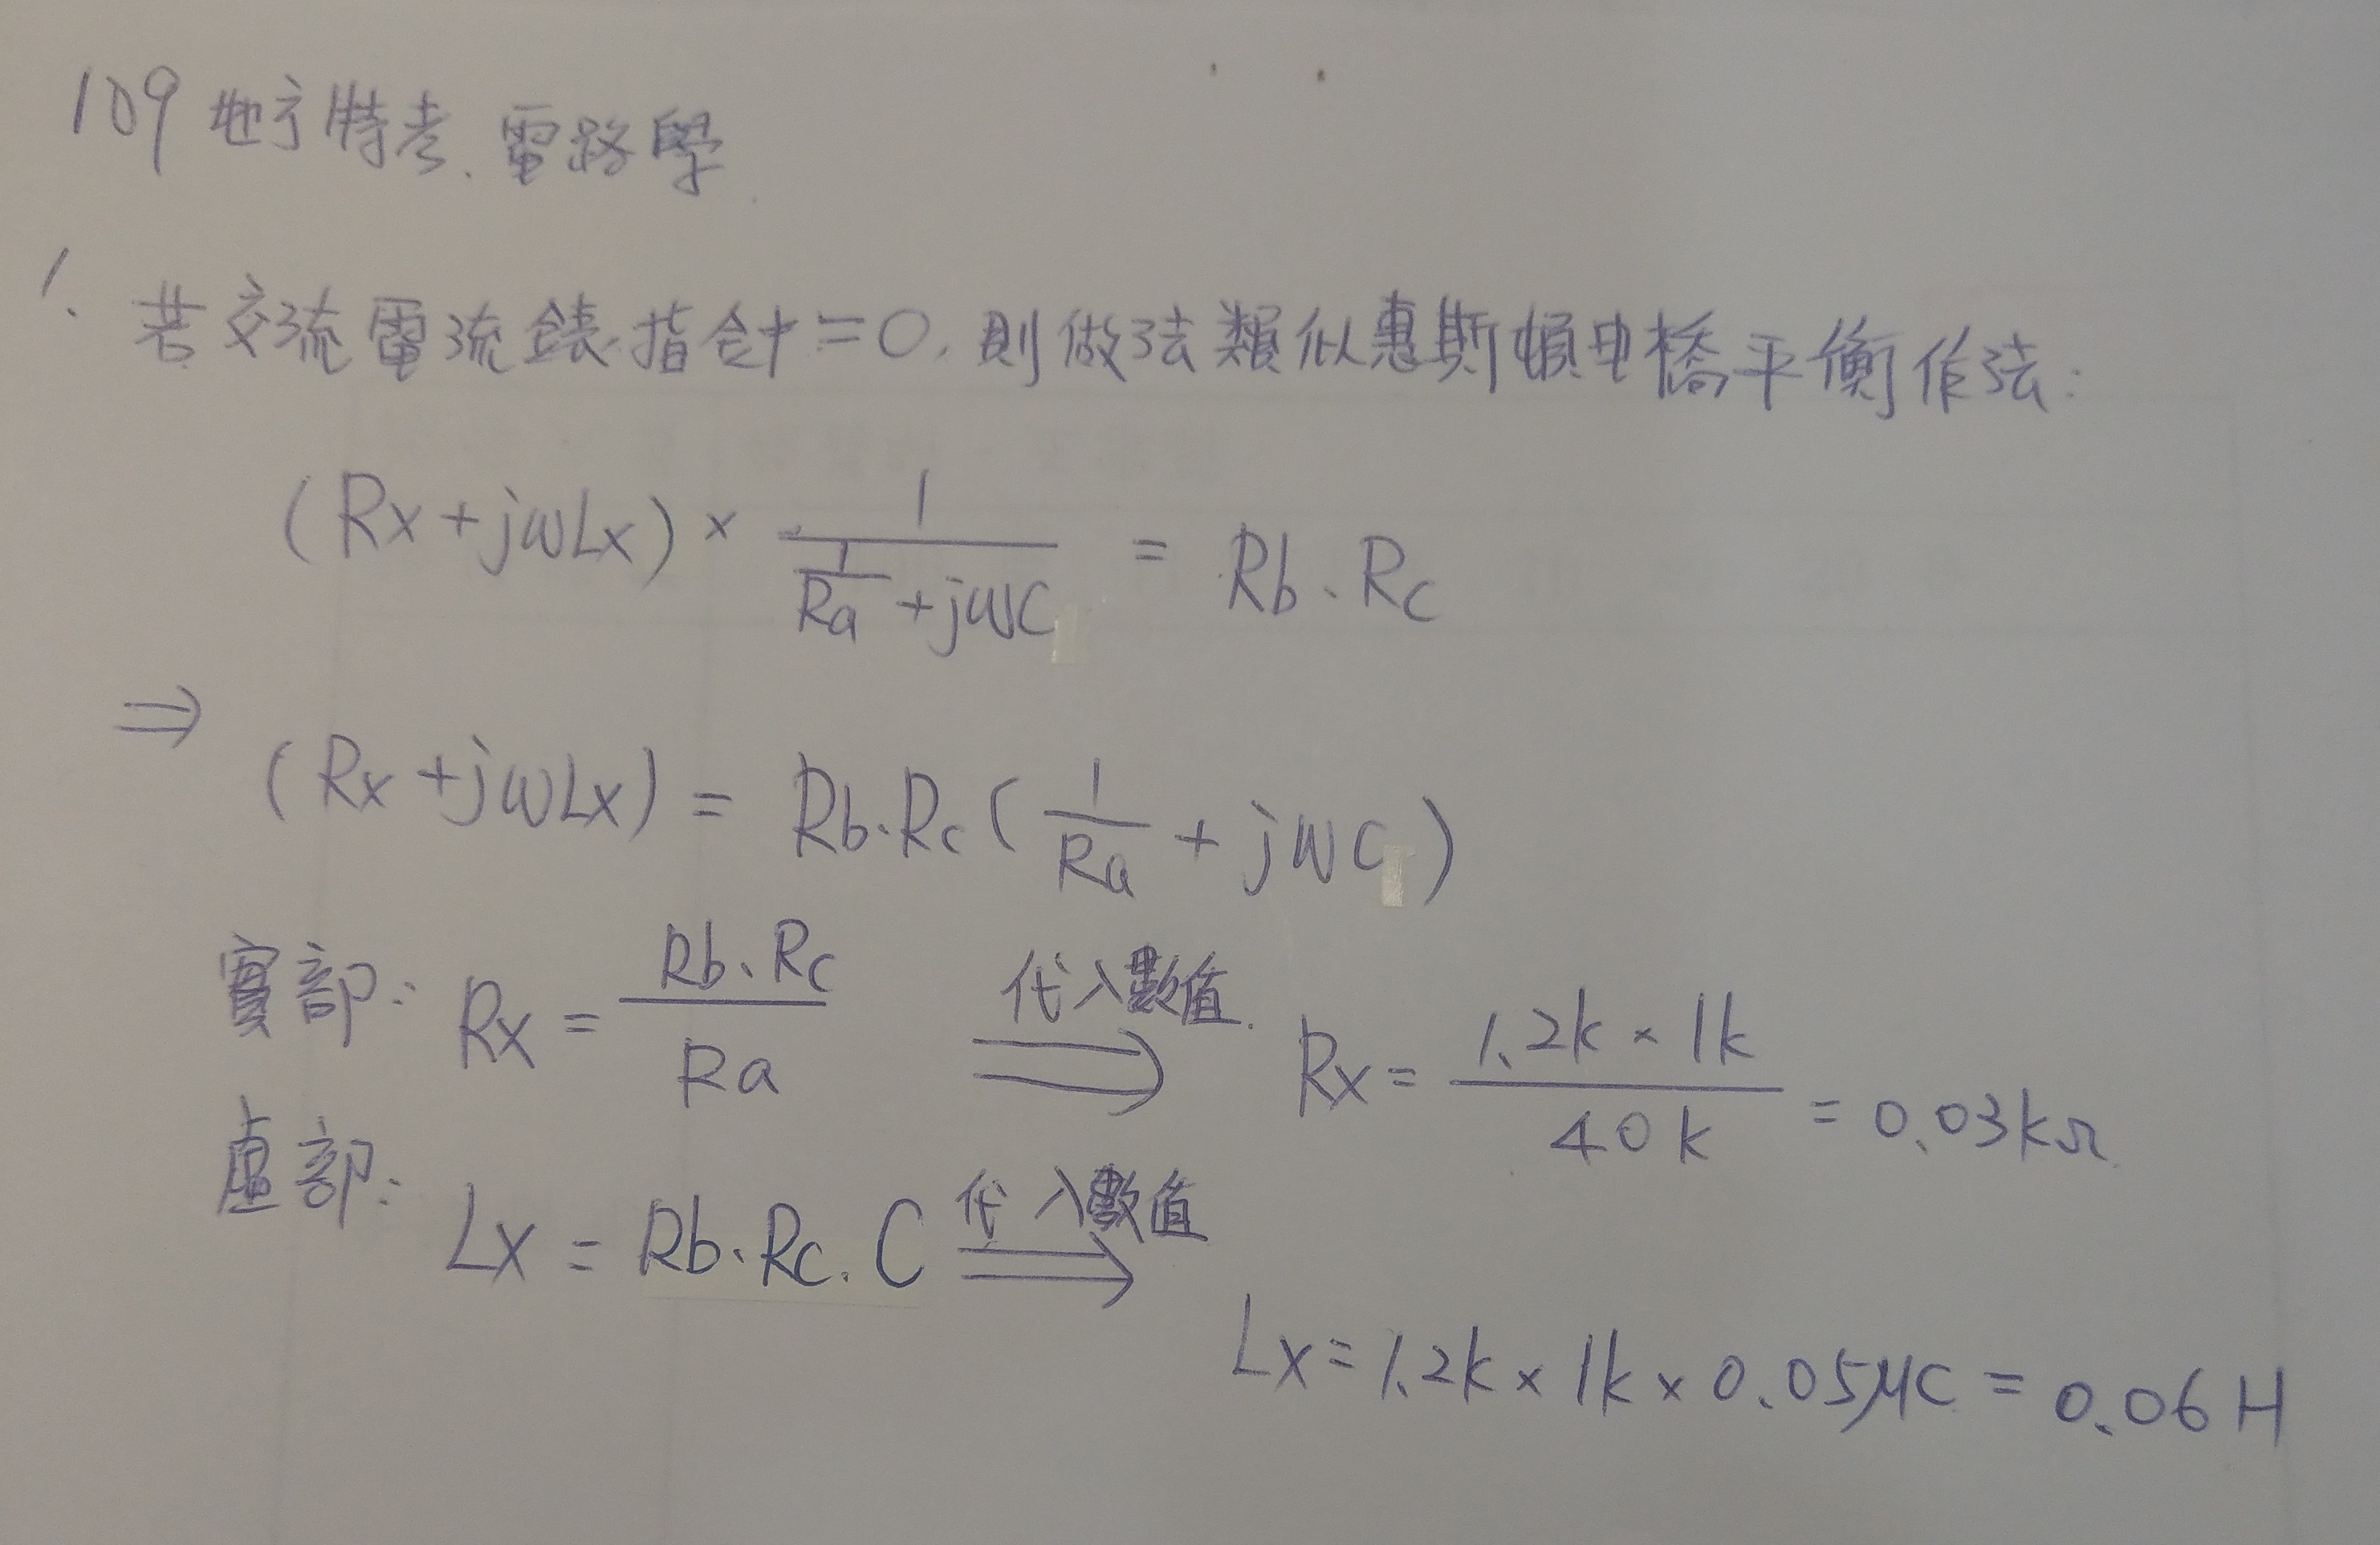 109 地方特考. 電路學
1. 若交流電流錶指針=0, 則做法類似惠斯頓电橋平衡作法:
(Rx+jωLx) × 1/(1/Ra + jωC) = Rb·Rc
⇒ (Rx+jωLx) = Rb·Rc (1/Ra + jωC)
實部: Rx = Rb·Rc/Ra 代入數值 ⇒ Rx = 1.2k × 1k/40k = 0.03kΩ
虛部: Lx = Rb·Rc·C 代入數值 ⇒
Lx = 1.2k × 1k × 0.05μC = 0.06 H